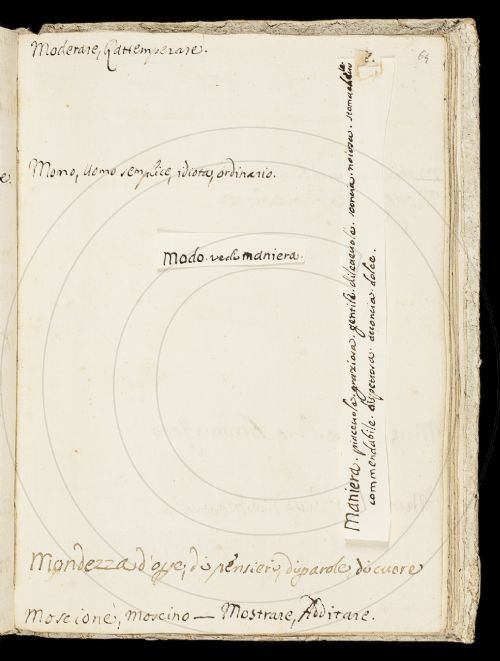 64
Moderare, Rattemperare.
Momo, Uomo semplice, idiota, ordinario.
Modo. vedi maniera.
Maniera. piacevole. graziosa. gentile. dilettevole. sconcia. noiosa.
commendabile. dispettosa. acconcia. dolce.
Mondezza d'opre, di pensieri, di parole, di cuore
Moscione, Moscino — Mostrare, Additare.